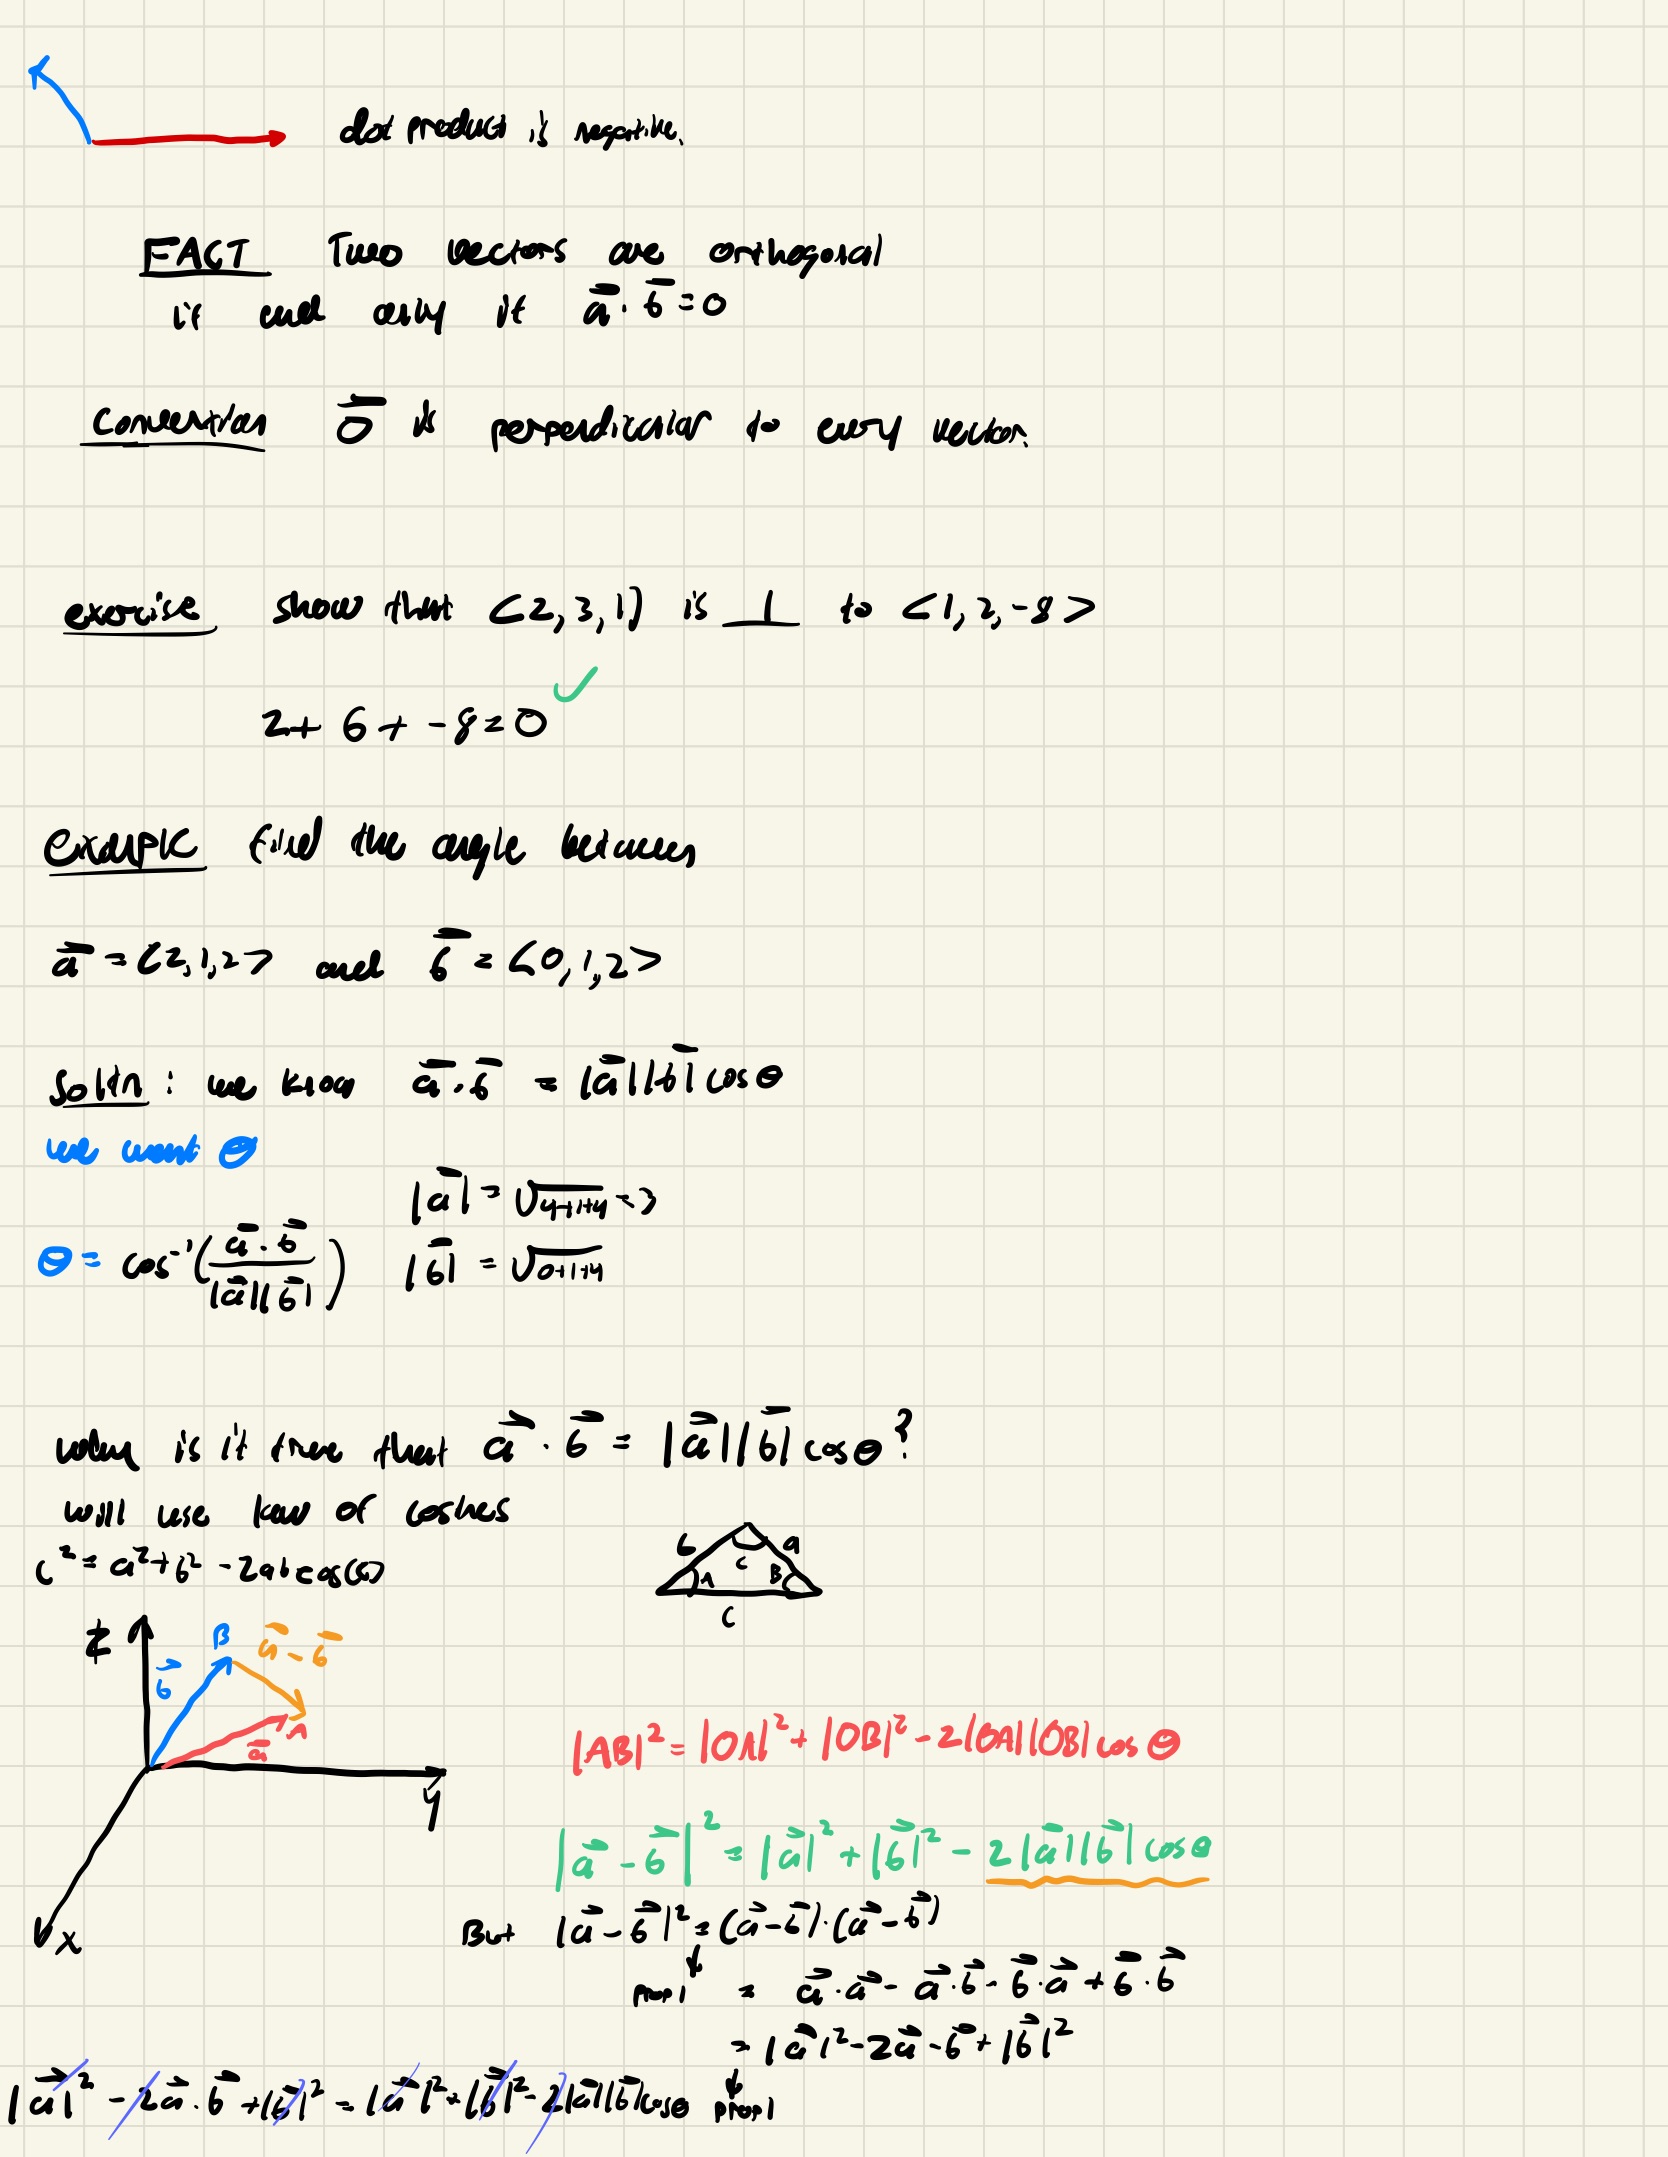 dot product is negative.
FACT Two vectors are orthogonal
if and only if a⃗ · b⃗ = 0
Convention 0⃗ is perpendicular to every vector.
exercise show that <2, 3, 1> is ⊥ to <1, 2, -8>
2 + 6 + -8 = 0 ✓
example find the angle between
a⃗ = <2, 1, 2> and b⃗ = <0, 1, 2>
soltn : we know a⃗ · b⃗ = |a⃗||b⃗| cos θ
we want θ
|a⃗| = √4+1+4 = 3
θ = cos⁻¹(a⃗ · b⃗ / |a⃗||b⃗|) |b⃗| = √0+1+4
why is it true that a⃗ · b⃗ = |a⃗||b⃗| cos θ?
will use law of cosines
c² = a² + b² - 2ab cos(c)
b a
C
A B
C
z
B a⃗ - b⃗
b⃗
A
a⃗
y
x
|AB|² = |OA|² + |OB|² - 2|OA||OB| cos θ
|a⃗ - b⃗|² = |a⃗|² + |b⃗|² - 2|a⃗||b⃗| cos θ
But |a⃗ - b⃗|² = (a⃗ - b⃗) · (a⃗ - b⃗)
prop 1 = a⃗ · a⃗ - a⃗ · b⃗ - b⃗ · a⃗ + b⃗ · b⃗
= |a⃗|² - 2a⃗ - b⃗ + |b⃗|²
|a⃗|² - 2a⃗ · b⃗ + |b⃗|² = |a⃗|² + |b⃗|² - 2|a⃗||b⃗| cos θ prop 1